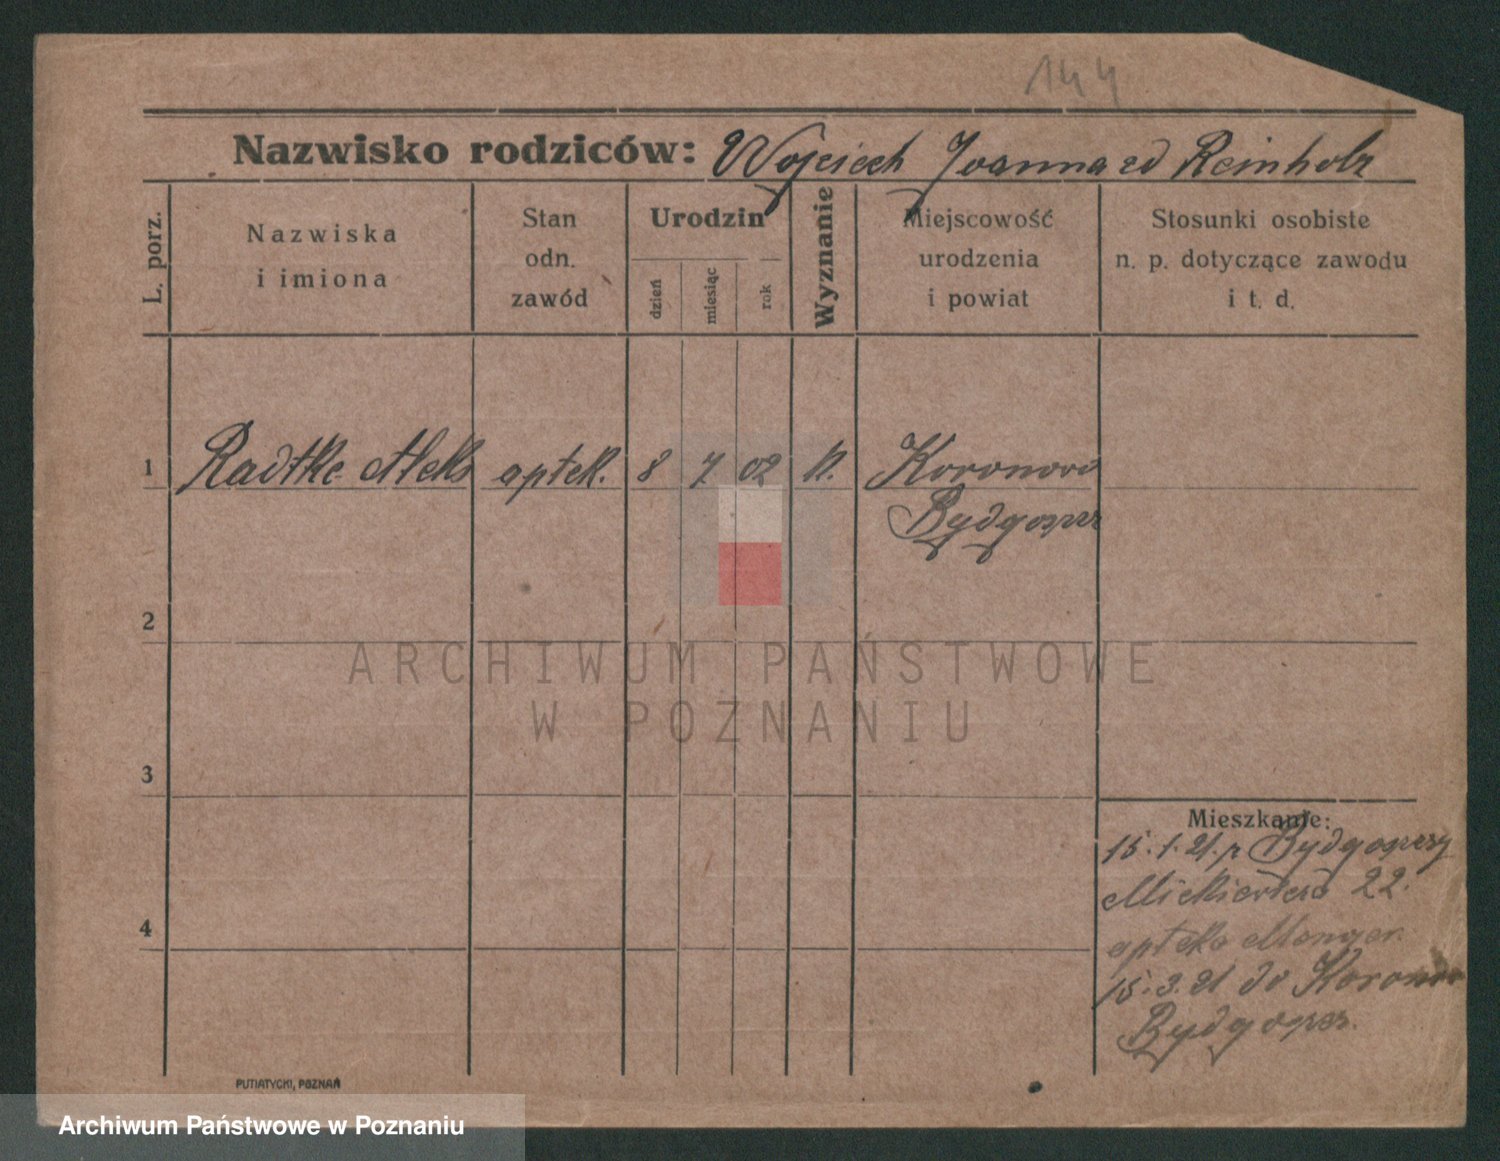 144
Nazwisko rodziców: Wojciech Joanna zd Reinholz
L. porz.
Nazwiska
i imiona
Stan
odn.
zawód
Urodzin
dzień
miesiąc
rok
Wyznanie
Miejscowość
urodzenia
i powiat
Stosunki osobiste
n. p. dotyczące zawodu
i t. d.
1 Radtke Aleks aptek. 8 7 02 k. Koronowo
Bydgoszcz
2
3
4
Mieszkanie:
15.1.21. z Bydgoszczy
22.
apteka
15.3.21 do Koronowo
Bydgoszcz.
PUTIATYCKI, POZNAŃ
ARCHIWUM PAŃSTWOWE
W POZNANIU
Archiwum Państwowe w Poznaniu